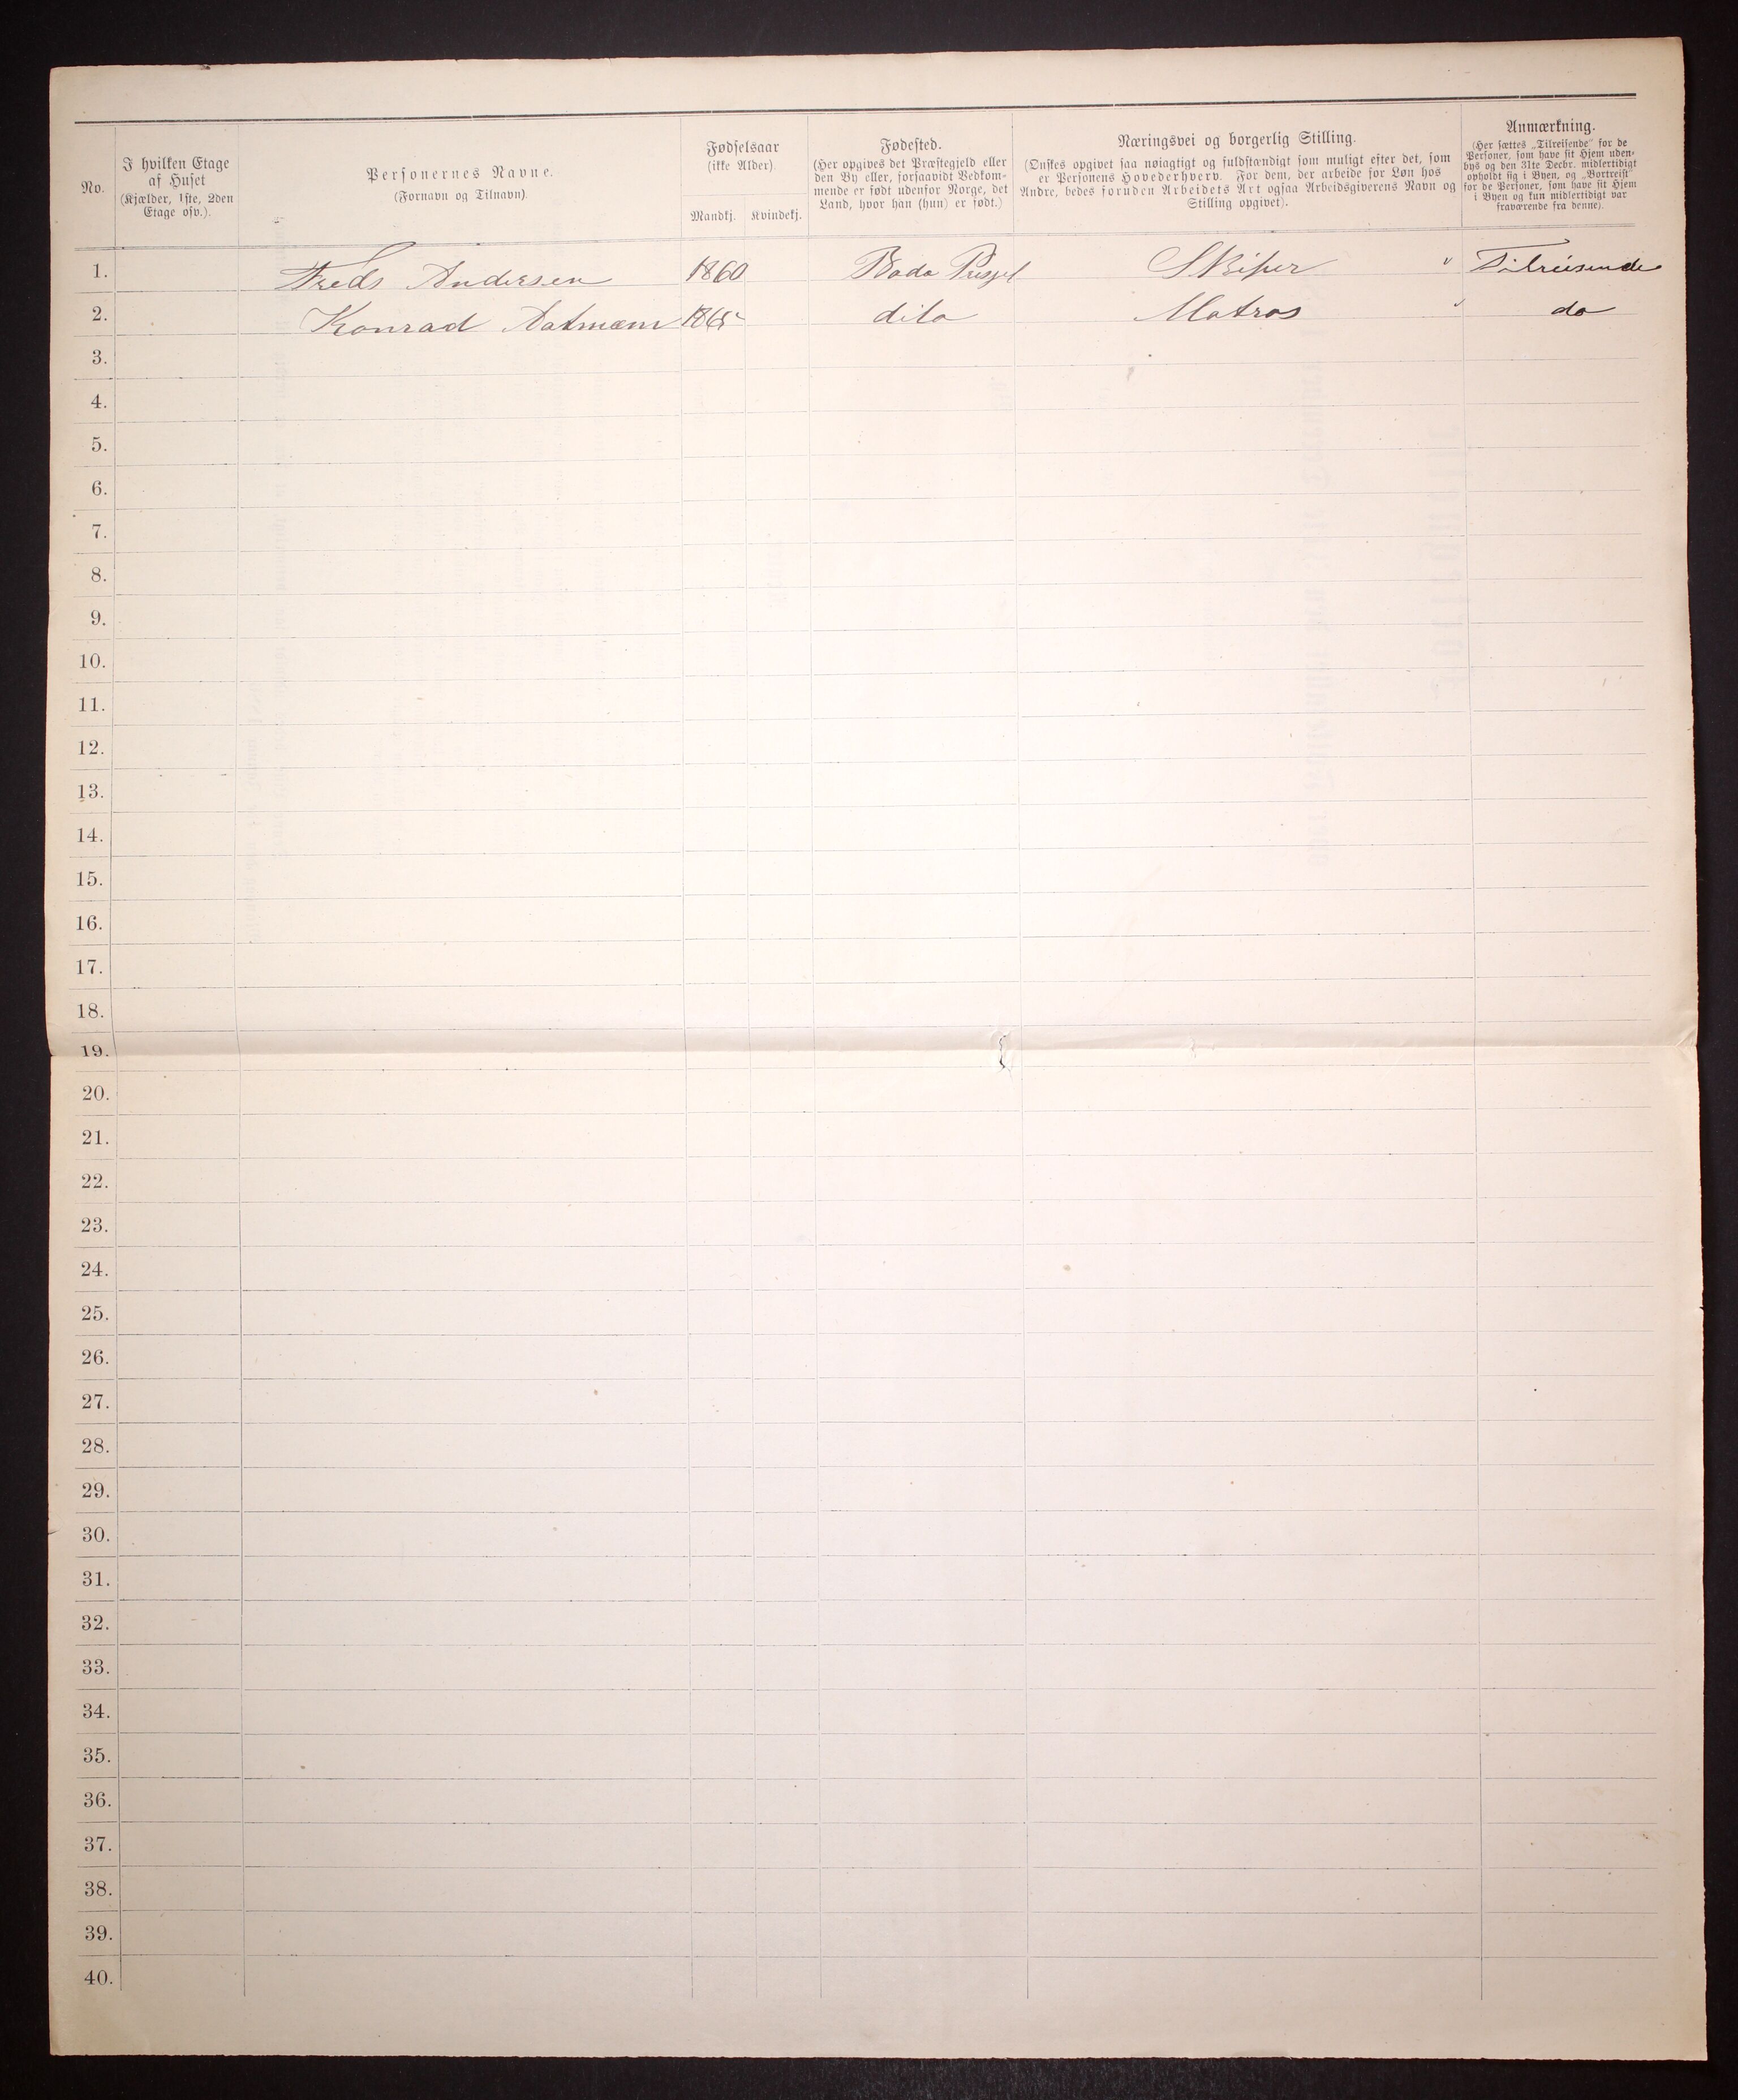 No.
I hvilken Etage
af Huset
(Kjælder, 1ste, 2den
Etage osv.).
Personernes Navne.
(Fornavn og Tilnavn).
Fødselsaar
(ikke Alder).
Mandkj. Kvindekj.
Fødested.
(Her opgives det Præstegjeld eller
den By eller, forsaavidt Vedkom-
mende er født udenfor Norge, det
Land, hvor han (hun) er født.)
Næringsvei og borgerlig Stilling.
(Ønskes opgivet saa nøiagtigt og fuldstændigt som muligt efter det, som
er Personens Hovederhverv. For dem, der arbeide for Løn hos
Andre, bedes foruden Arbeidets Art ogsaa Arbeidsgiverens Navn og
Stilling opgivet).
Anmærkning.
(Her sættes „Tilreisende" for de
Personer, som have sit Hjem uden-
bys og den 31te Decbr. midlertidigt
opholdt sig i Byen, og „Bortreist"
for de Personer, som have sit Hjem
i Byen og kun midlertidigt var
fraværende fra denne).
1. Andersen 1860 Bodø Skiper Tilreisende
2. Konrad 1865 dito Matros do
3.
4.
5.
6.
7.
8.
9.
10.
11.
12.
13.
14.
15.
16.
17.
18.
19.
20.
21.
22.
23.
24.
25.
26.
27.
28.
29.
30.
31.
32.
33.
34.
35.
36.
37.
38.
39.
40.